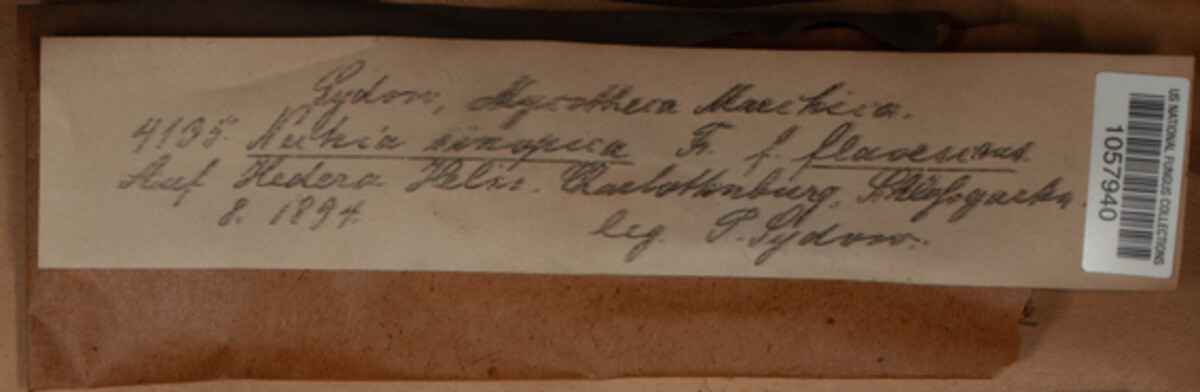 Sydow, Mycotheca Marchica.
4135. Nectria sinopica Fr. f. flavescens
Auf Hedera Helix. Charlottenburg, Schloßgarten.
8. 1894. leg. P. Sydow.
US NATIONAL FUNGUS COLLECTIONS
1057940